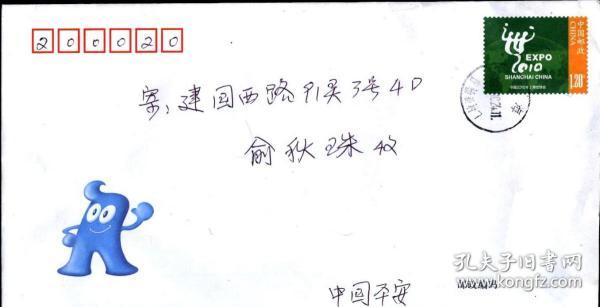 200020
中国邮政
CHINA
EXPO
2010
SHANGHAI CHINA
1.20元
寄:建国西路91弄3号4D
俞秋珠 收
中国平安
孔夫子旧书网
www.kongfz.com